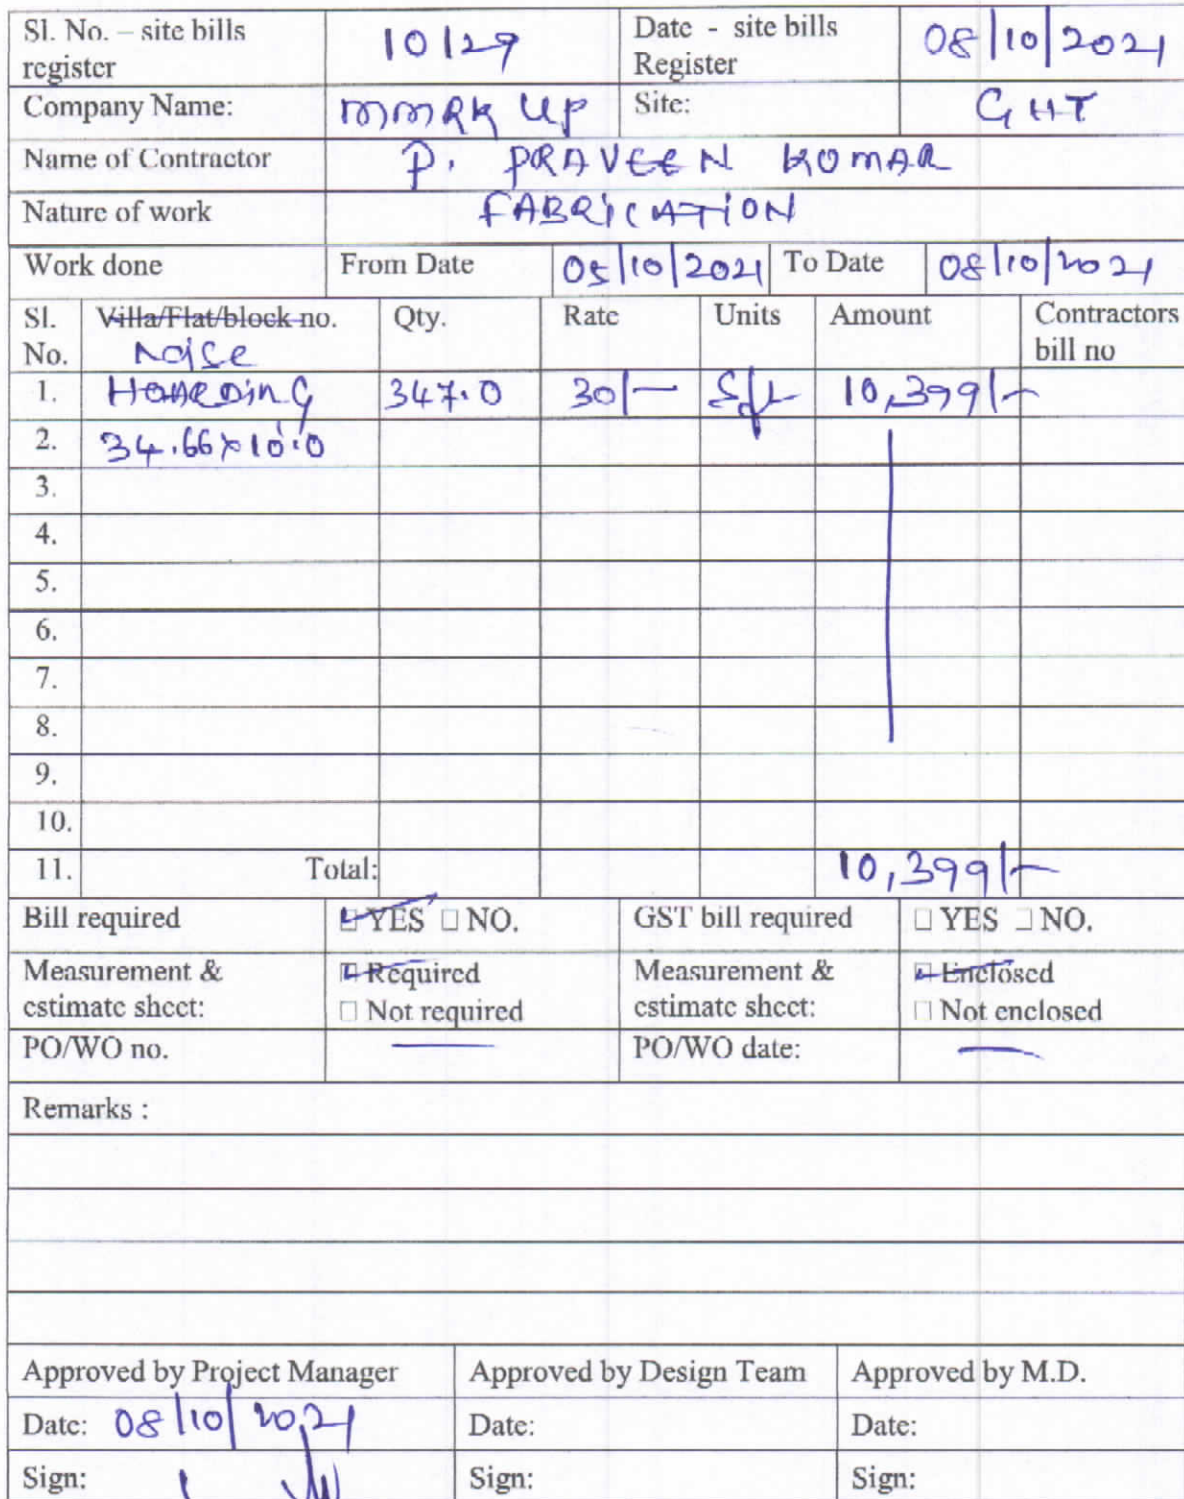 Sl. No. – site bills register 10129 Date - site bills Register 08/10/2021
Company Name: MMRK UP Site: GHT
Name of Contractor P. PRAVEEN KOMAR
Nature of work FABRICATION
Work done From Date 05/10/2021 To Date 08/10/2021
Sl. No. Villa/Flat/block no. Noise Qty. Rate Units Amount Contractors bill no
1. HOARDING 347.0 30/- Sft 10,399/-
2. 34.66x10.0
3.
4.
5.
6.
7.
8.
9.
10.
11. Total: 10,399/-
Bill required YES NO. GST bill required YES NO.
Measurement & estimate sheet: Required Not required Measurement & estimate sheet: Enclosed Not enclosed
PO/WO no. — PO/WO date: —
Remarks :
Approved by Project Manager Approved by Design Team Approved by M.D.
Date: 08/10/2021 Date: Date:
Sign: Sign: Sign: